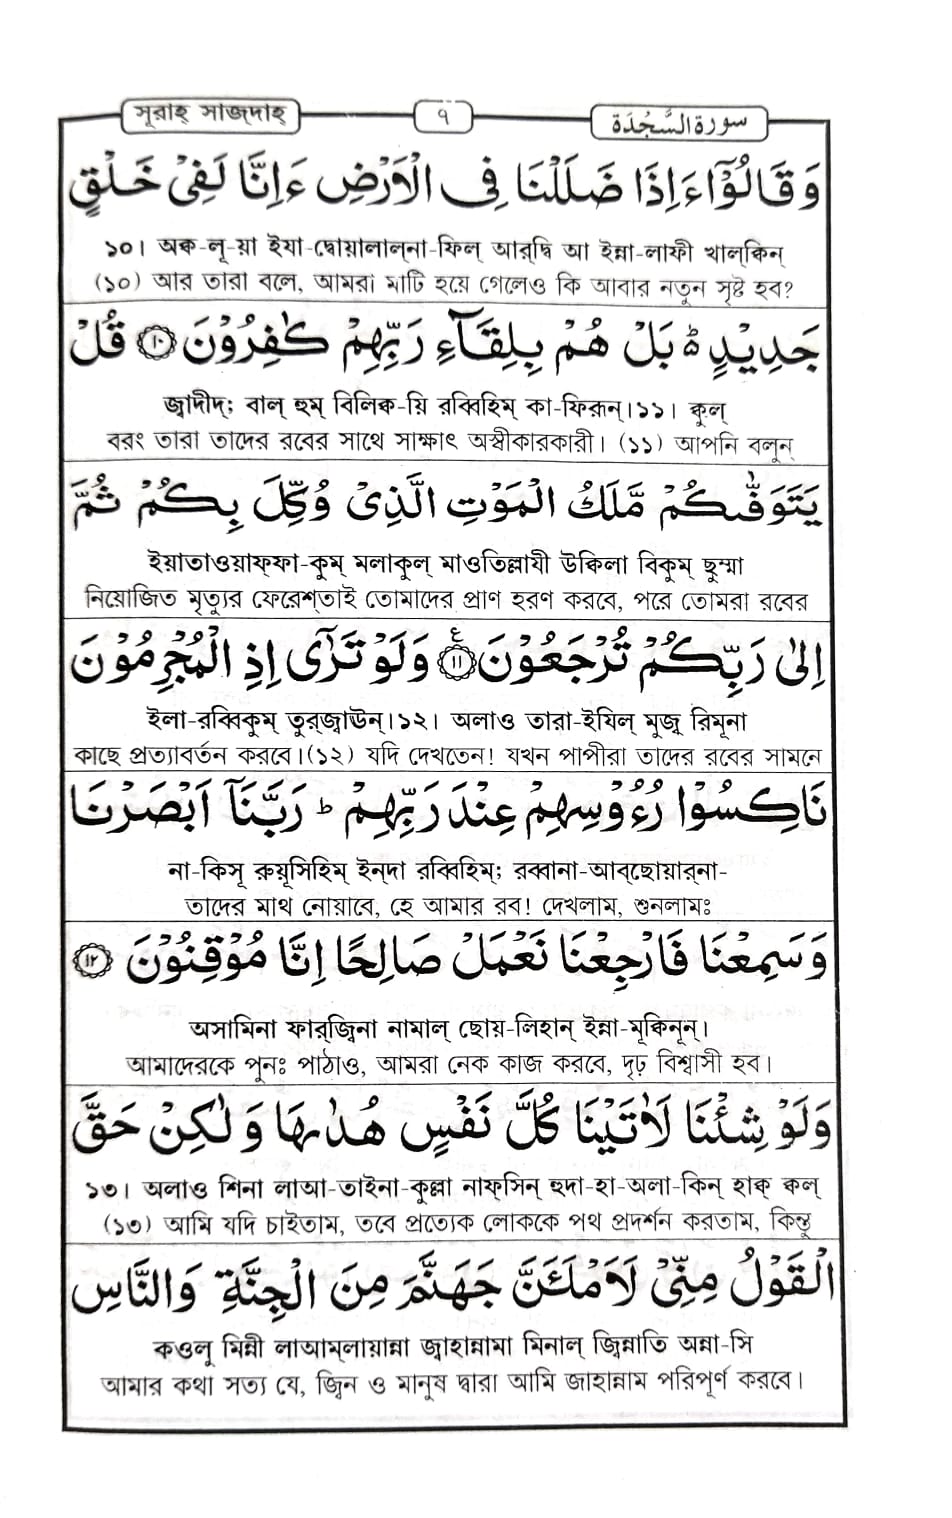 সূরাহ্ সাজ্‌দাহ্ ৭ سورة السَّجْدَة
وَقَالُوْٓا ءَاِذَا ضَلَلْنَا فِى الْاَرْضِ ءَاِنَّا لَفِىْ خَلْقٍ
১০। অক্ব-লূ-য়া ইযা-দ্বোয়ালাল্‌না-ফিল্ আর্‌দ্বি আ ইন্না-লাফী খাল্‌ক্বিন্
(১০) আর তারা বলে, আমরা মাটি হয়ে গেলেও কি আবার নতুন সৃষ্ট হব?
جَدِيْدٍ ؕ بَلْ هُمْ بِلِقَآءِ رَبِّهِمْ كٰفِرُوْنَ ۝١٠ قُلْ
জ্বাদীদ্; বাল্ হুম্ বিলিক্ব-য়ি রব্বিহিম্ কা-ফিরূন্।১১। ক্বুল্
বরং তারা তাদের রবের সাথে সাক্ষাৎ অস্বীকারকারী। (১১) আপনি বলুন্
يَتَوَفّٰىكُمْ مَّلَكُ الْمَوْتِ الَّذِىْ وُكِّلَ بِكُمْ ثُمَّ
ইয়াতাওয়াফ্‌ফা-কুম্ মলাকুল্ মাওতিল্লাযী উকিলা বিকুম্ ছুম্মা
নিয়োজিত মৃত্যুর ফেরেশ্‌তাই তোমাদের প্রাণ হরণ করবে, পরে তোমরা রবের
اِلٰى رَبِّكُمْ تُرْجَعُوْنَ ۝١١ ع وَلَوْ تَرٰٓى اِذِ الْمُجْرِمُوْنَ
ইলা-রব্বিকুম্ তুর্‌জ্বাঊন্।১২। অলাও তারা-ইযিল্ মুজ্ব্ রিমূনা
কাছে প্রত্যাবর্তন করবে।(১২) যদি দেখতেন! যখন পাপীরা তাদের রবের সামনে
نَاكِسُوْا رُءُوْسِهِمْ عِنْدَ رَبِّهِمْ ؕ رَبَّنَآ اَبْصَرْنَا
না-কিসূ রুয়ূসিহিম্ ইন্‌দা রব্বিহিম্; রব্বানা-আব্‌ছোয়ার্‌না-
তাদের মাথ নোয়াবে, হে আমার রব! দেখলাম, শুনলামঃ
وَسَمِعْنَا فَارْجِعْنَا نَعْمَلْ صَالِحًا اِنَّا مُوْقِنُوْنَ ۝١٢
অসামিনা ফার্‌জ্বিনা নামাল্ ছোয়-লিহান্ ইন্না-মূক্বিনূন্।
আমাদেরকে পুনঃ পাঠাও, আমরা নেক কাজ করবে, দৃঢ় বিশ্বাসী হব।
وَلَوْ شِئْنَا لَاٰتَيْنَا كُلَّ نَفْسٍ هُدٰىهَا وَلٰكِنْ حَقَّ
১৩। অলাও শিনা লাআ-তাইনা-কুল্লা নাফ্‌সিন্ হুদা-হা-অলা-কিন্ হাক্ব ক্বল্
(১৩) আমি যদি চাইতাম, তবে প্রত্যেক লোককে পথ প্রদর্শন করতাম, কিন্তু
الْقَوْلُ مِنِّىْ لَاَمْلَئَنَّ جَهَنَّمَ مِنَ الْجِنَّةِ وَالنَّاسِ
ক্বওলু মিন্নী লাআম্‌লায়ান্না জ্বাহান্নামা মিনাল্ জ্বিন্নাতি অন্না-সি
আমার কথা সত্য যে, জ্বিন ও মানুষ দ্বারা আমি জাহান্নাম পরিপূর্ণ করবে।